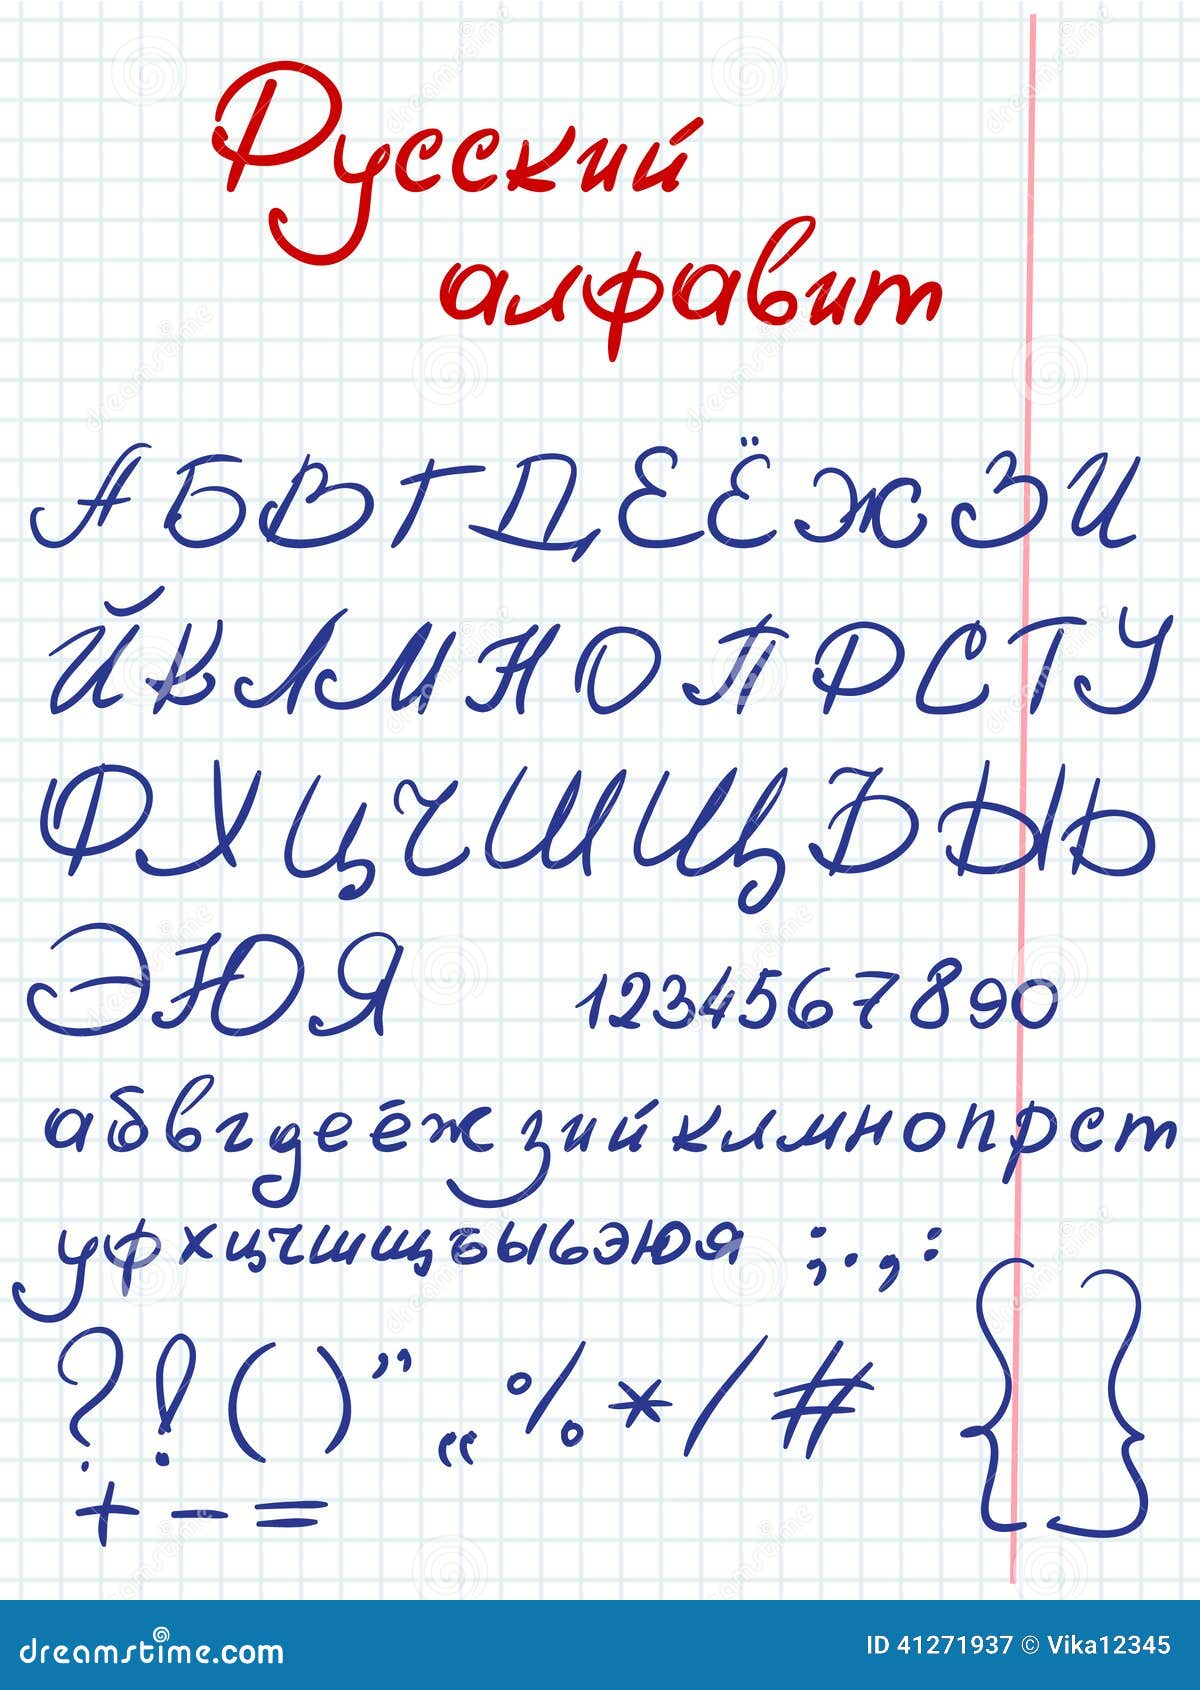 Русский
алфавит
АБВГДЕЁЖЗИ
ЙКЛМНОПРСТУ
ФХЦЧШЩЪЫЬ
ЭЮЯ 1234567890
абвгдеёжзийклмнопрст
уфхцчшщъыьэюя ;.,:
?!()”„%*/#{}
+-=
dreamstime.com ID 41271937 © Vika12345